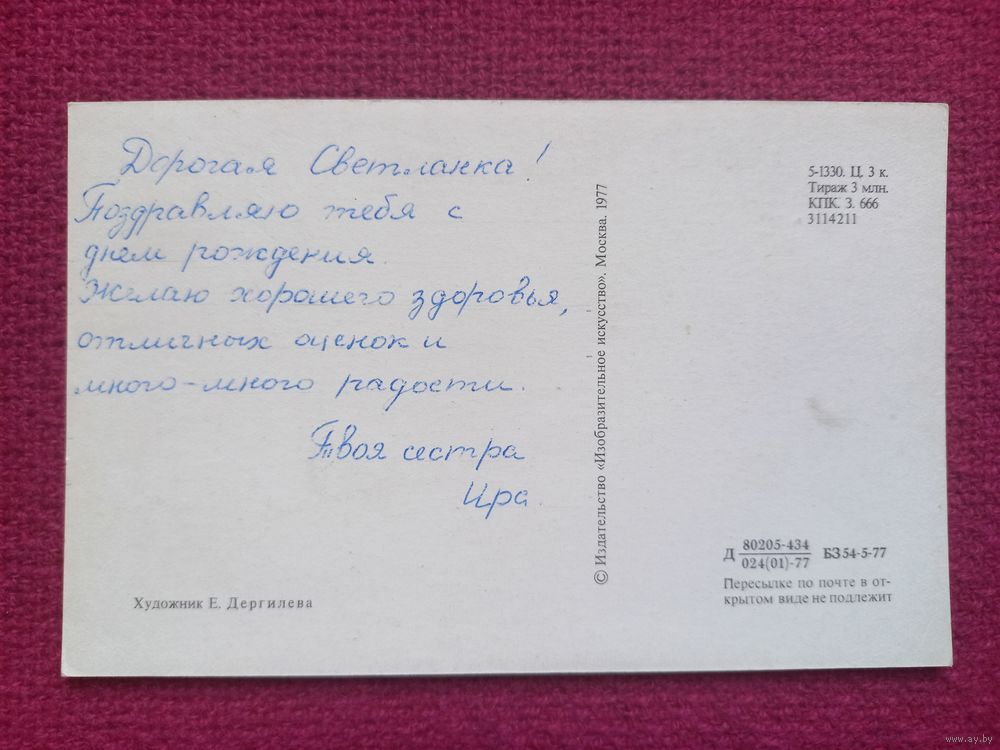 Дорогая Светланка!
Поздравляю тебя с
днем рождения.
Желаю хорошего здоровья,
отличных оценок и
много-много радости.
Твоя сестра
Ира.
Художник Е. Дергилева
© Издательство «Изобразительное искусство». Москва. 1977
5-1330. Ц. 3 к.
Тираж 3 млн.
КПК. З. 666
3114211
Д 80205-434 БЗ 54-5-77
024(01)-77
Пересылке по почте в от-
крытом виде не подлежит
www.ay.by